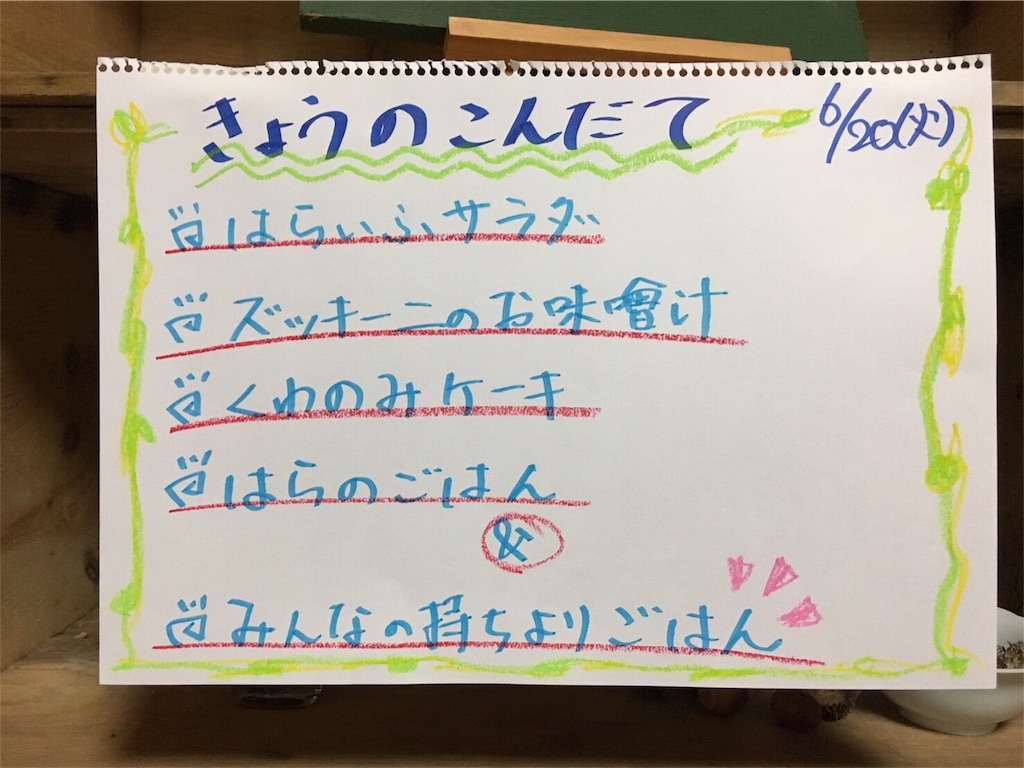 きょうのこんだて 6/20(火)
はらいふサラダ
ズッキーニのお味噌汁
くわのみケーキ
はらのごはん
&
みんなの持ちよりごはん